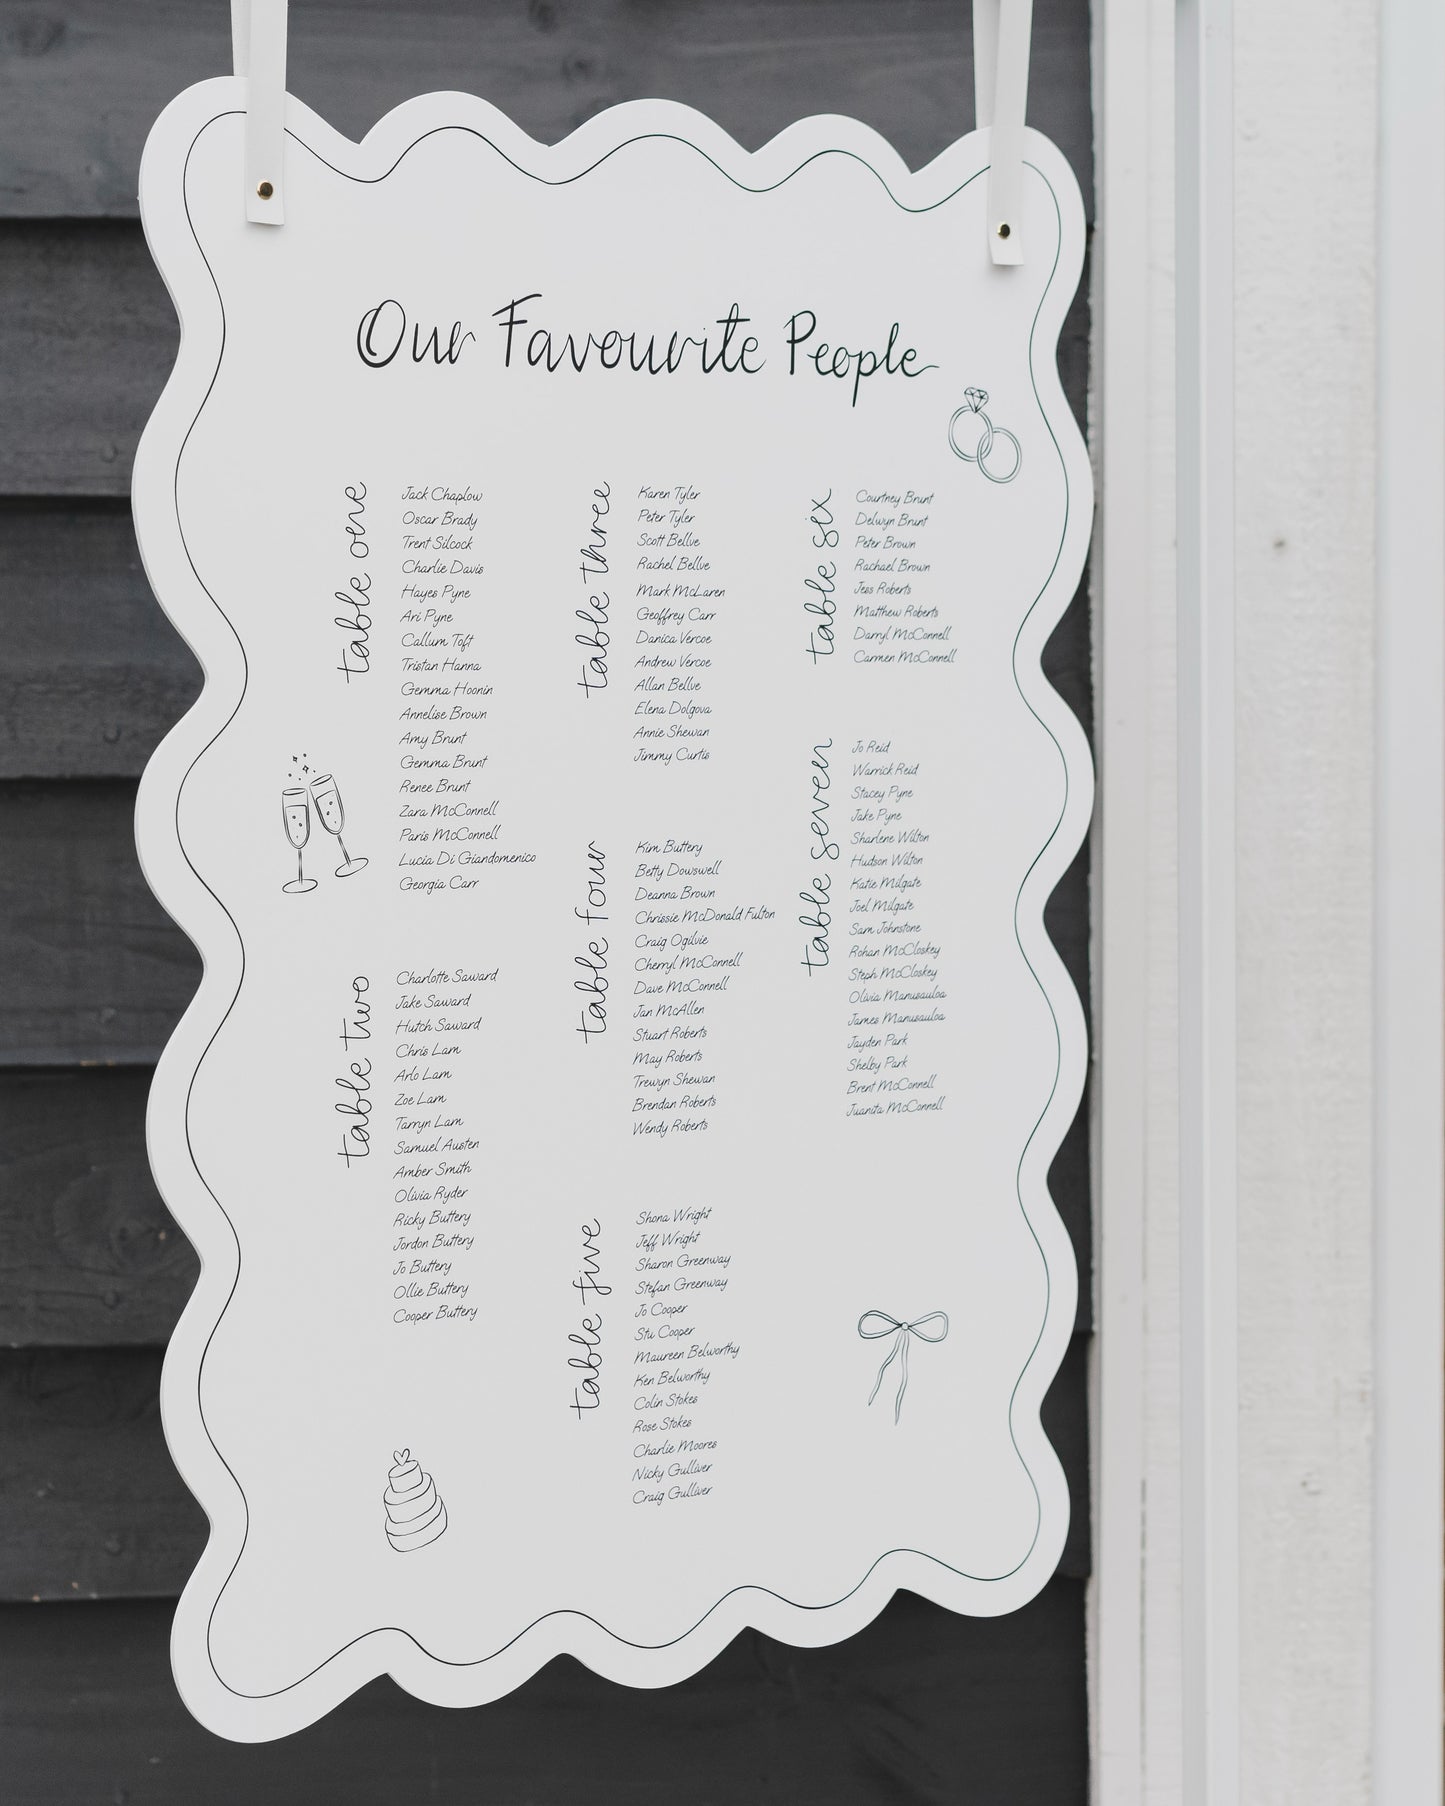 Our Favourite People
table one
Jack Chaplow
Oscar Brady
Trent Silcock
Charlie Davis
Hayes Pyne
Ari Pyne
Callum Toft
Tristan Hanna
Gemma Hoonin
Annelise Brown
Amy Brunt
Gemma Brunt
Renee Brunt
Zara McConnell
Paris McConnell
Lucia Di Giandomenico
Georgia Carr
table two
Charlotte Saward
Jake Saward
Hutch Saward
Chris Lam
Arlo Lam
Zoe Lam
Tarryn Lam
Samuel Austen
Amber Smith
Olivia Ryder
Ricky Buttery
Jordon Buttery
Jo Buttery
Ollie Buttery
Cooper Buttery
table three
Karen Tyler
Peter Tyler
Scott Bellve
Rachel Bellve
Mark McLaren
Geoffrey Carr
Danica Vercoe
Andrew Vercoe
Allan Bellve
Elena Dolgova
Annie Shewan
Jimmy Curtis
table four
Kim Buttery
Betty Dowswell
Deanna Brown
Chrissie McDonald Fulton
Craig Ogilvie
Cherryl McConnell
Dave McConnell
Jan McAllen
Stuart Roberts
May Roberts
Trewyn Shewan
Brendan Roberts
Wendy Roberts
table five
Shona Wright
Jeff Wright
Sharon Greenway
Stefan Greenway
Jo Cooper
Stu Cooper
Maureen Belworthy
Ken Belworthy
Colin Stokes
Rose Stokes
Charlie Moores
Nicky Gulliver
Craig Gulliver
table six
Courtney Brunt
Delwyn Brunt
Peter Brown
Rachael Brown
Jess Roberts
Matthew Roberts
Darryl McConnell
Carmen McConnell
table seven
Jo Reid
Warrick Reid
Stacey Pyne
Jake Pyne
Sharlene Wilton
Hudson Wilton
Katie Milgate
Joel Milgate
Sam Johnstone
Rohan McCloskey
Steph McCloskey
Olivia Manusauloa
James Manusauloa
Jayden Park
Shelby Park
Brent McConnell
Juanita McConnell